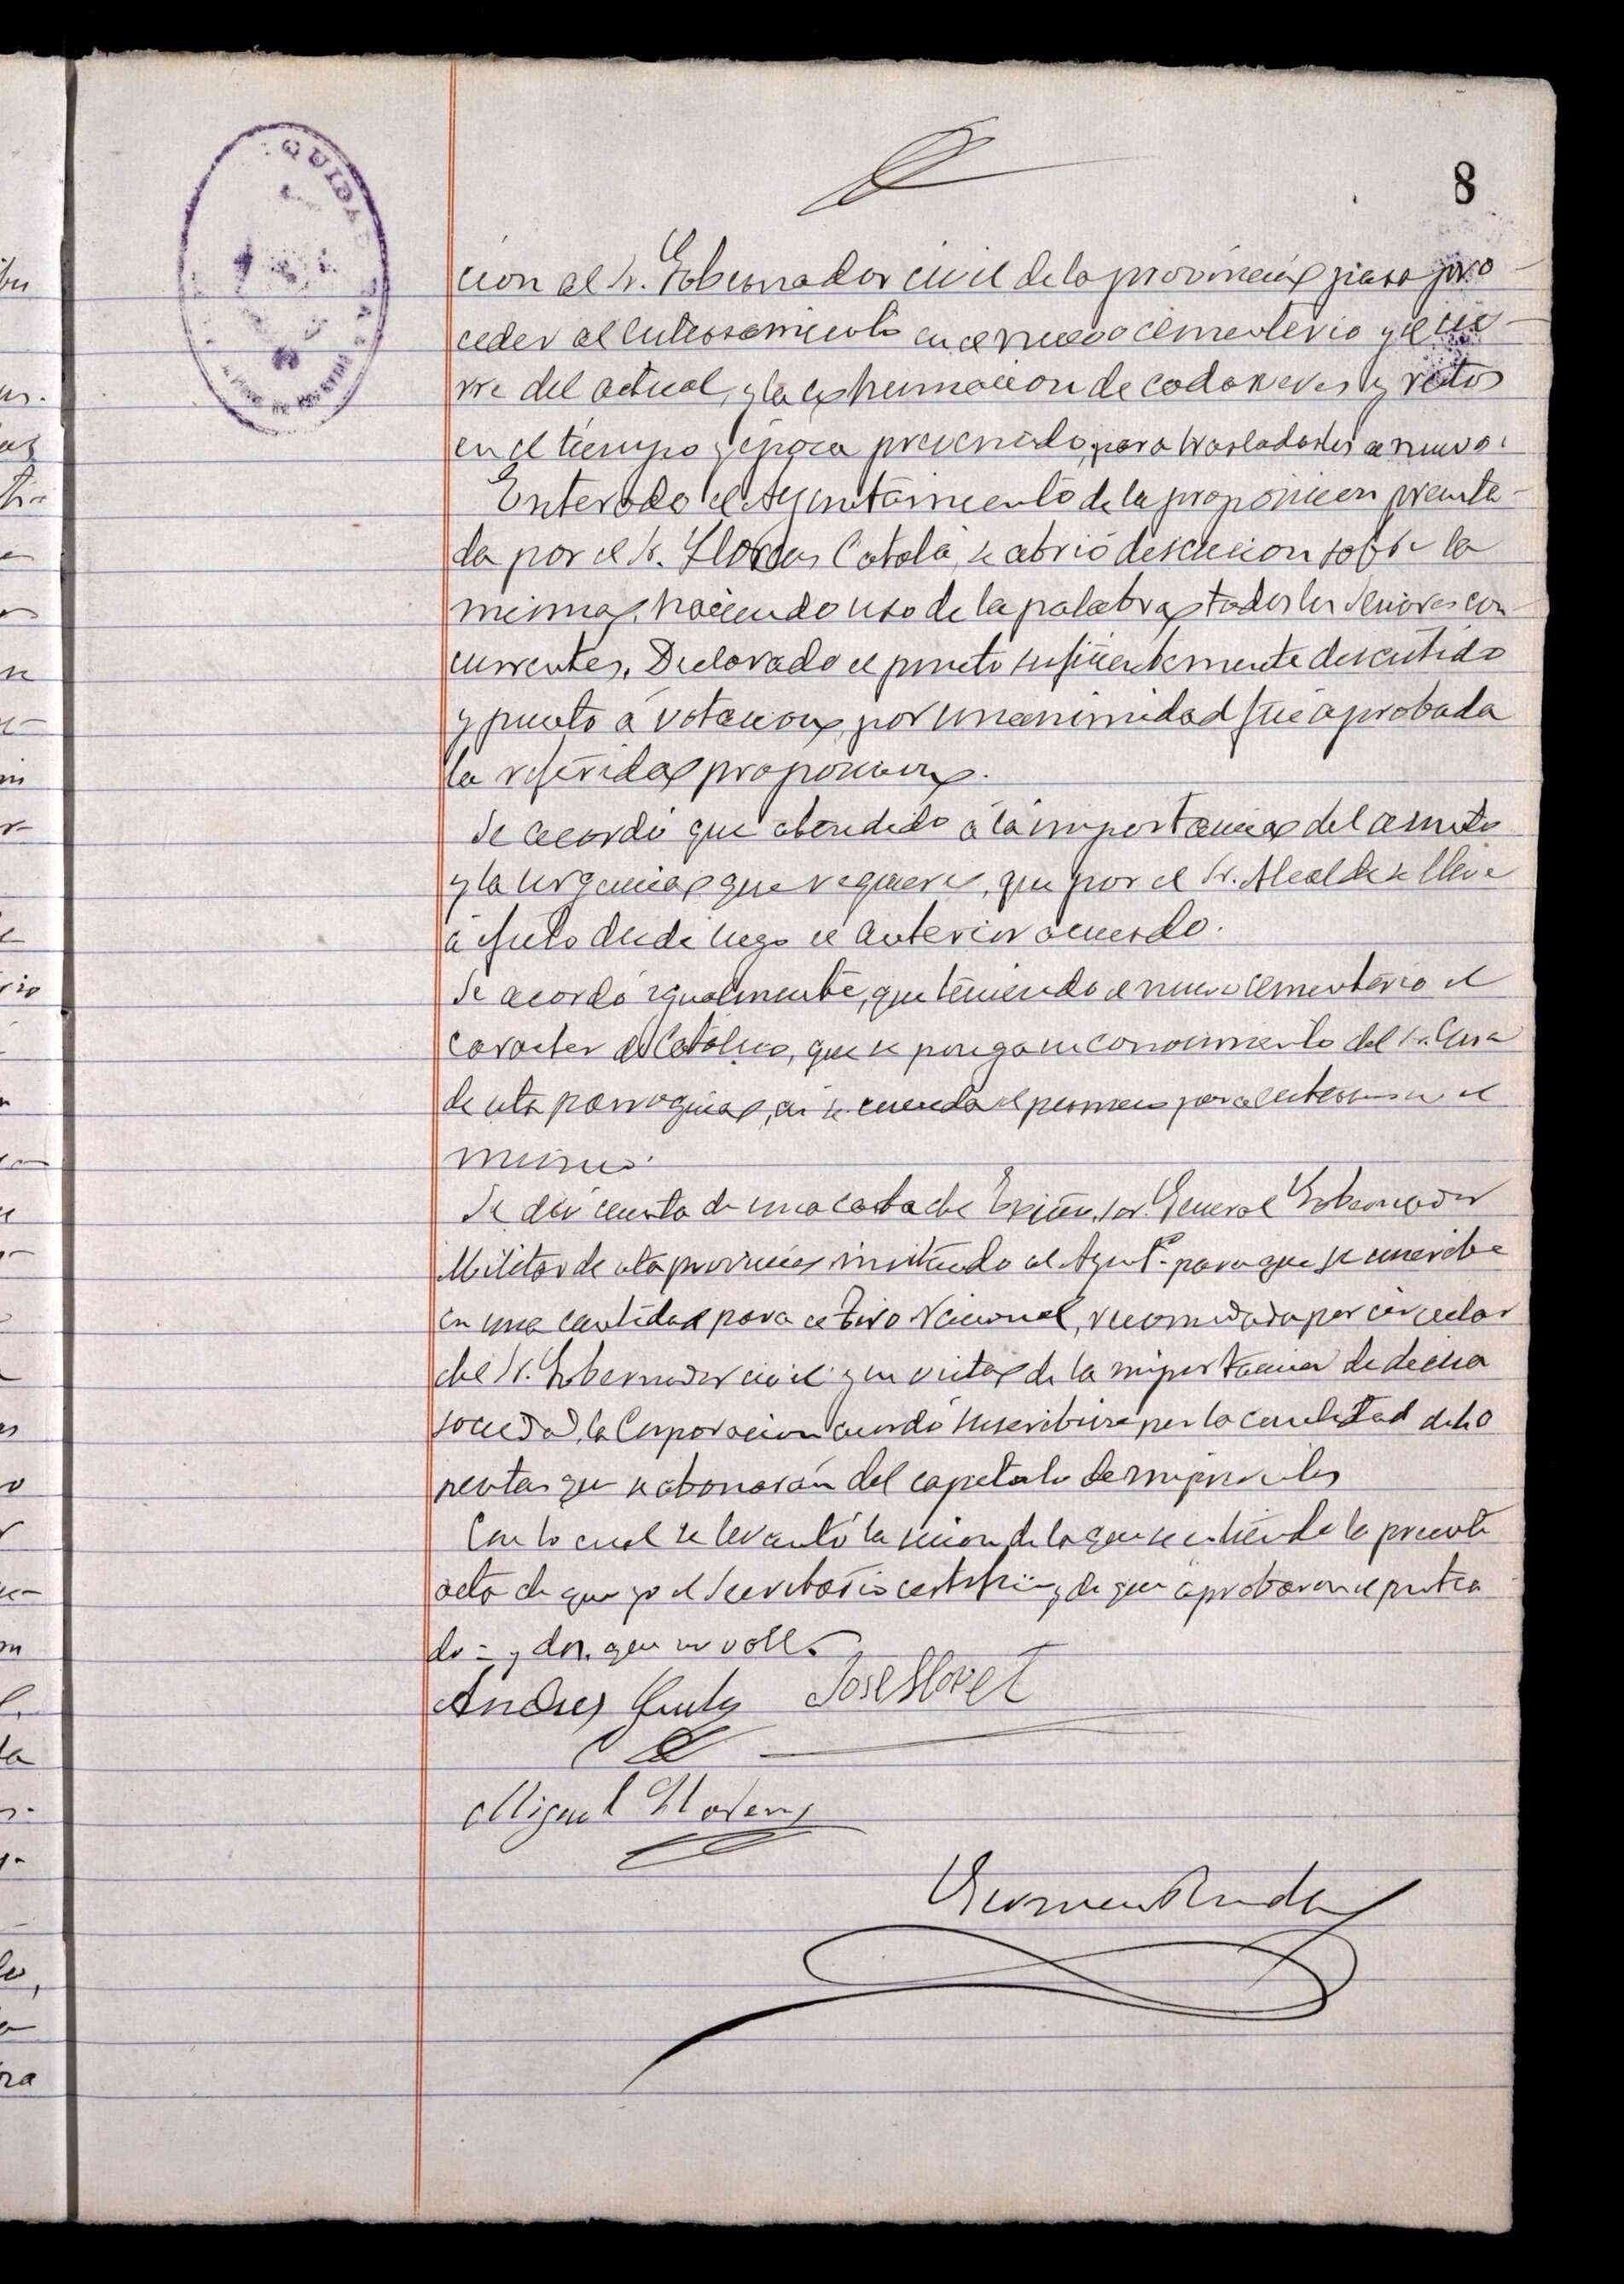 8
cion al Sr. Gobernador civil de la provincia para pro-
ceder al enterramiento en el nuevo cementerio y el cie-
rre del actual, y la exhumacion de cadaveres y restos
en el tiempo y época prevenido, para trasladarles al nuevo.
Enterado el Ayuntamiento de la proposicion presenta-
da por el Sr. Llorens Catalá, se abrió descusion sobre la
misma, haciendo uso de la palabra todos los Señores con-
currentes. Declarado el punto suficientemente descutido
y puesto á votacion, por unanimidad fué aprobada
la referida proposicion.
Se acordó que atendido á la importancia del asunto
y la urgencia que requiere, que por el Sr. Alcalde se lleve
á efecto desde luego el anterior acuerdo.
Se acordó igualmente, que teniendo el nuevo cementerio el
caracter de Católico, que se ponga en conocimiento del Sr. Cura
de esta parroquia, asi se conceda el permiso para enterrar en el
mismo.
Se dió cuenta de una carta del Excmo. Sor. General Gobernador
Militar de esta provincia invitando al Aynto. para que se suscriba
en una cantidad para el Tiro Nacional, recomendada por circular
del Sr. Gobernador civil y en vista de la importancia de dicha
sociedad, la Corporacion acordó suscribirse por la cantidad de
pesetas que se abonarán del capitulo de imprevistos
Con lo cual se levantó la sesion, de la que se estiende la presente
acta de que yo el Secretario certifico, y de que aprobaron el
do = y dos, que no vale.
Andres
José Lloret
Miguel Llorens